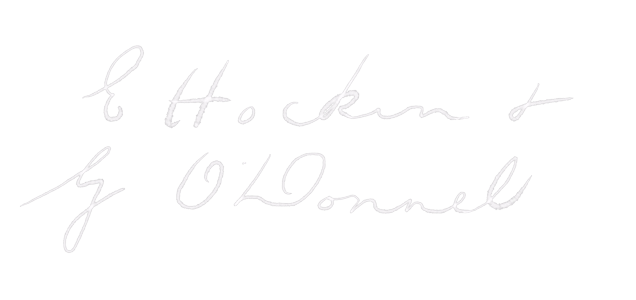 E Hockin &
G O'Donnell